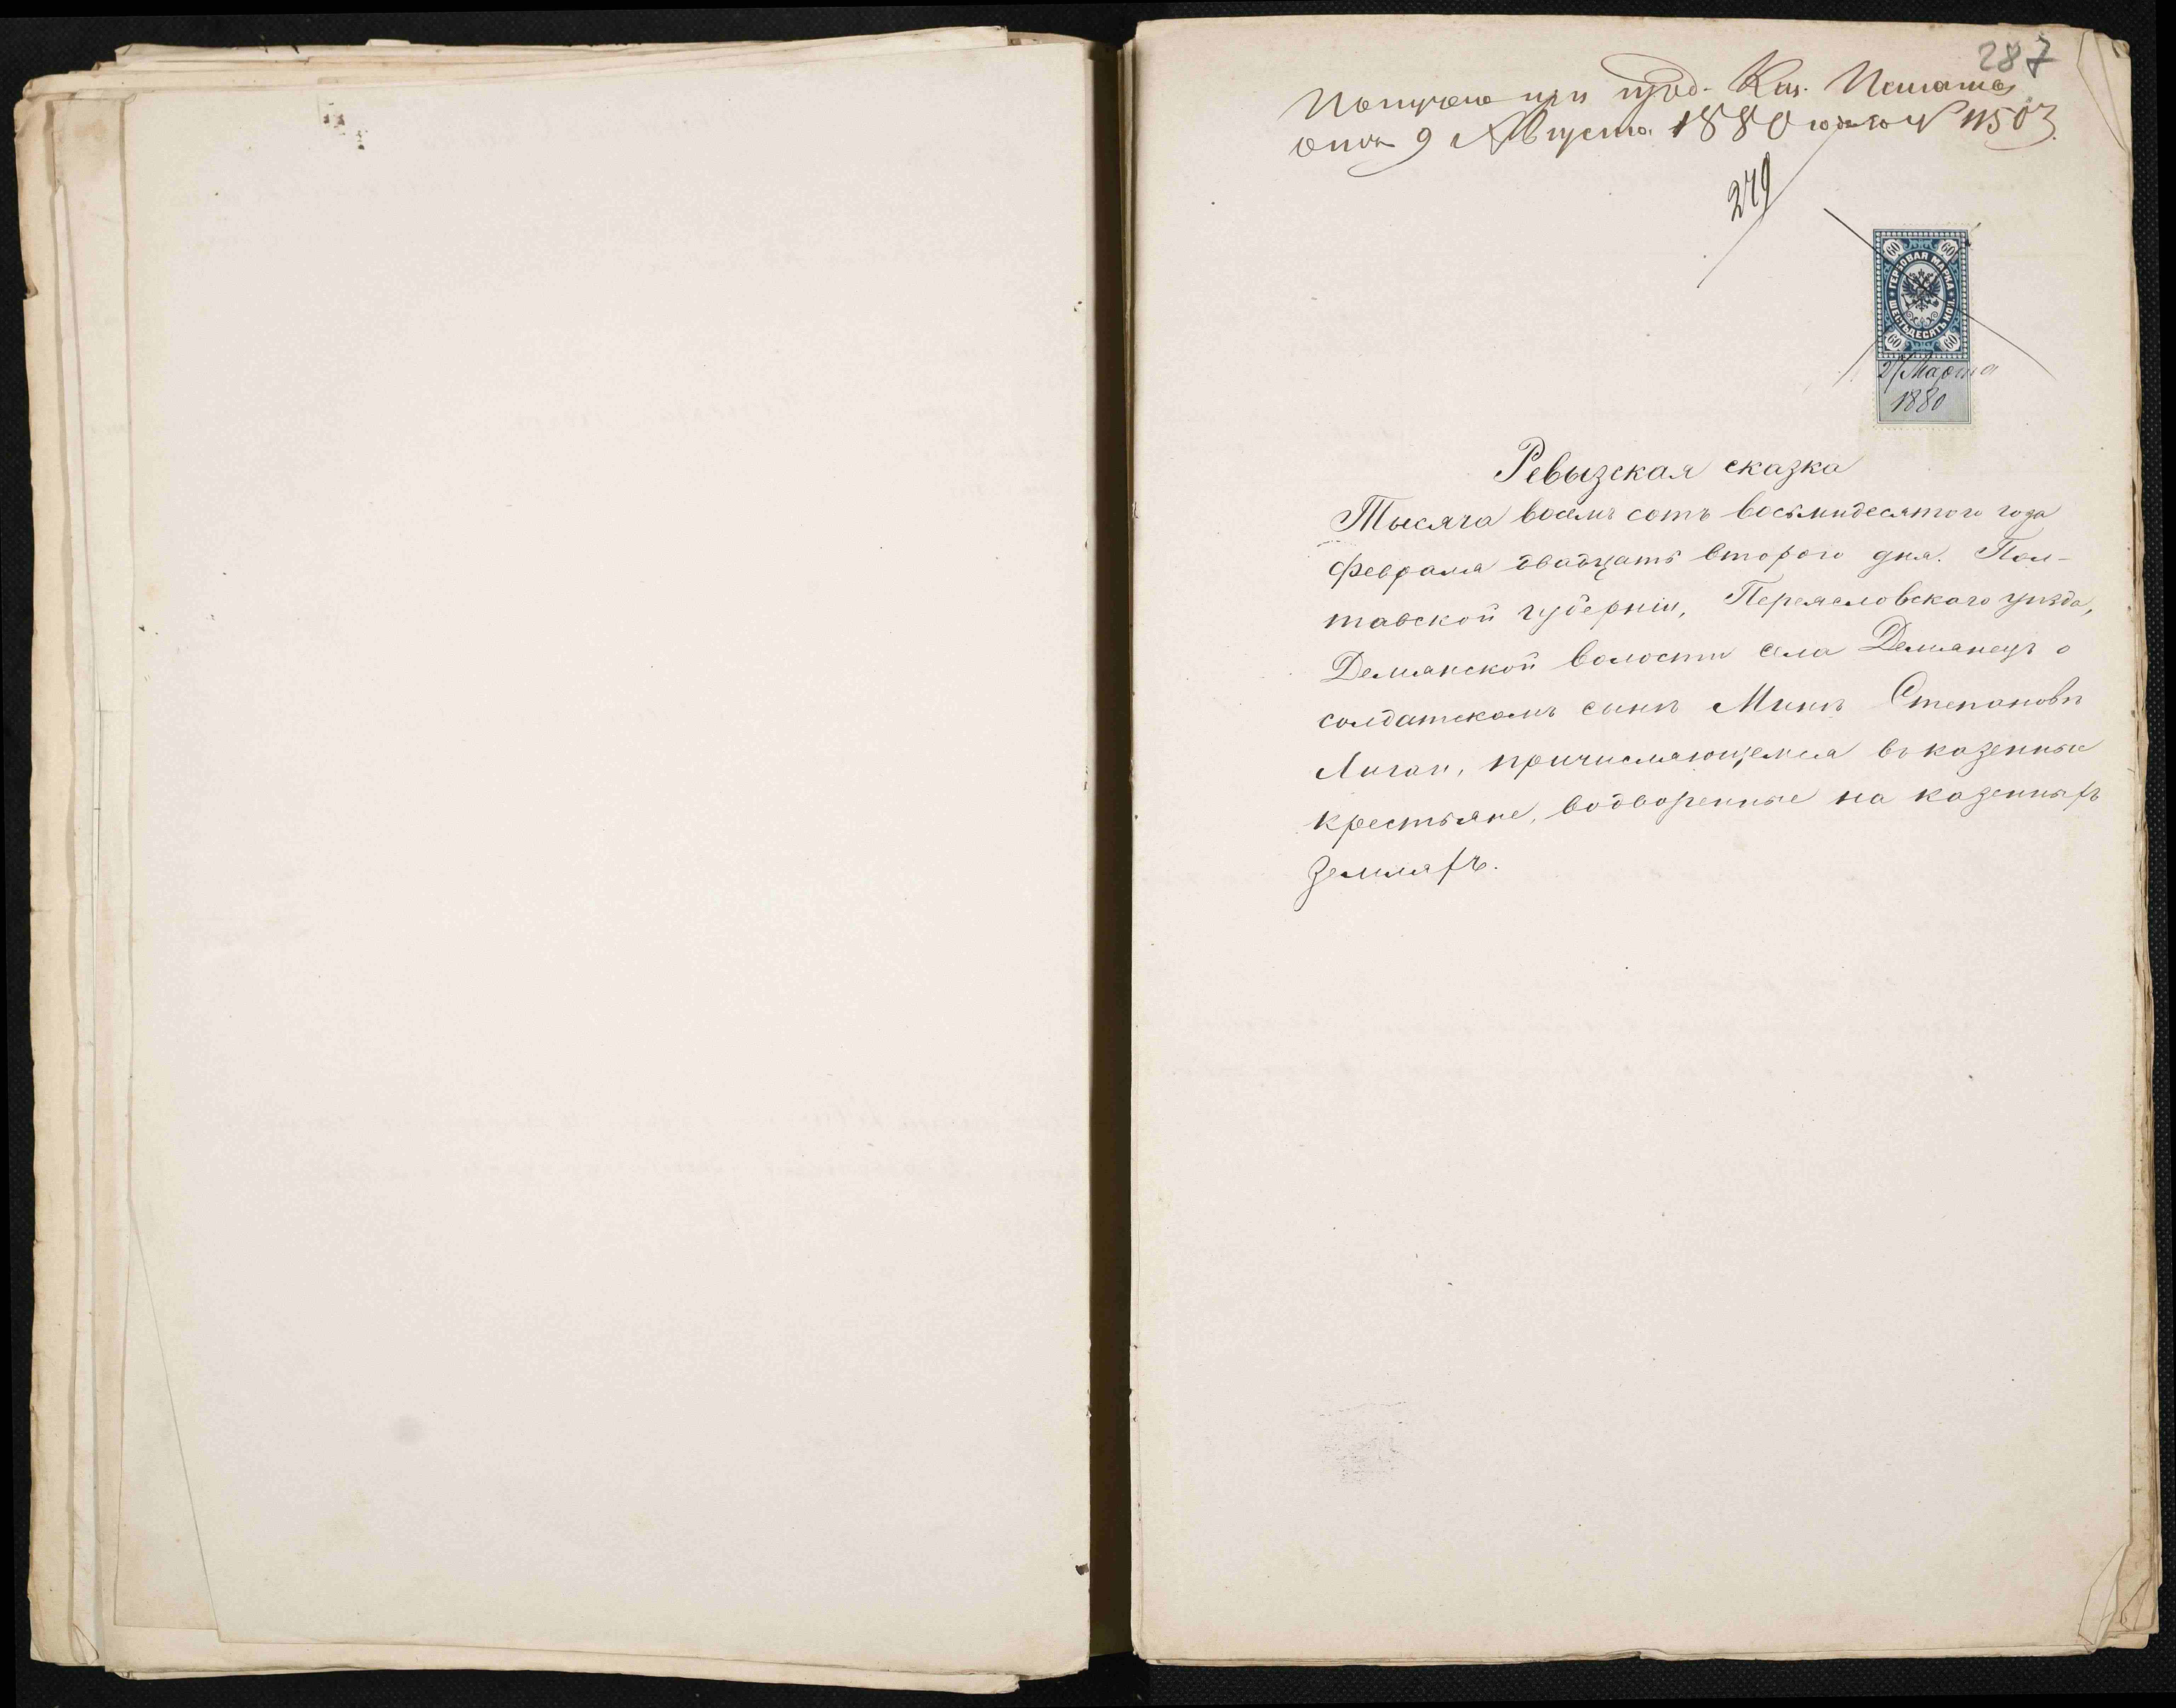 287
Получено при пред. Каз. Палаты
отъ 9 Августа 1880 года за № 11503.
279
60 60
ГЕРБОВАЯ МАРКА
ШЕСТЬДЕСЯТЪ КОП.
60 60
21 Марта
1880
Ревызская сказка
Тысяча восемь сотъ восьмидесятого года
февраля двадцать второго дня. Пол-
тавской губерніи, Переясловского уѣзда,
Демянской волости села Демянецъ о
солдатскомъ сынѣ Минѣ Степановѣ
причисляющемся въ казенные
крестьяне, водворенные на казенныхъ
земляхъ.